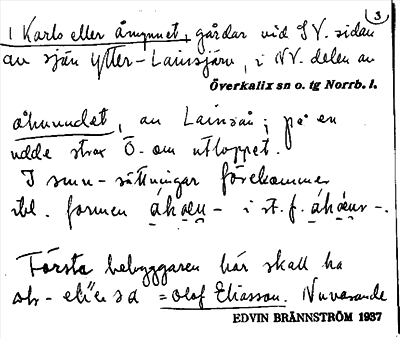 3
1 Karls eller åmynnet, gårdar vid SV. sidan
av sjön Ytter-Lainsjärv, i NV. delen av
Överkalix sn o. tg Norrb. l.
åhuvudet, av Lainsån; på en
udde strax Ö. om utloppet.
I smn-sättningar förekommer
ibl. formen - i st. f.
Första bebyggaren här skall ha
= Olof Eliasson. Nuvarande
EDVIN BRÄNNSTRÖM 1937